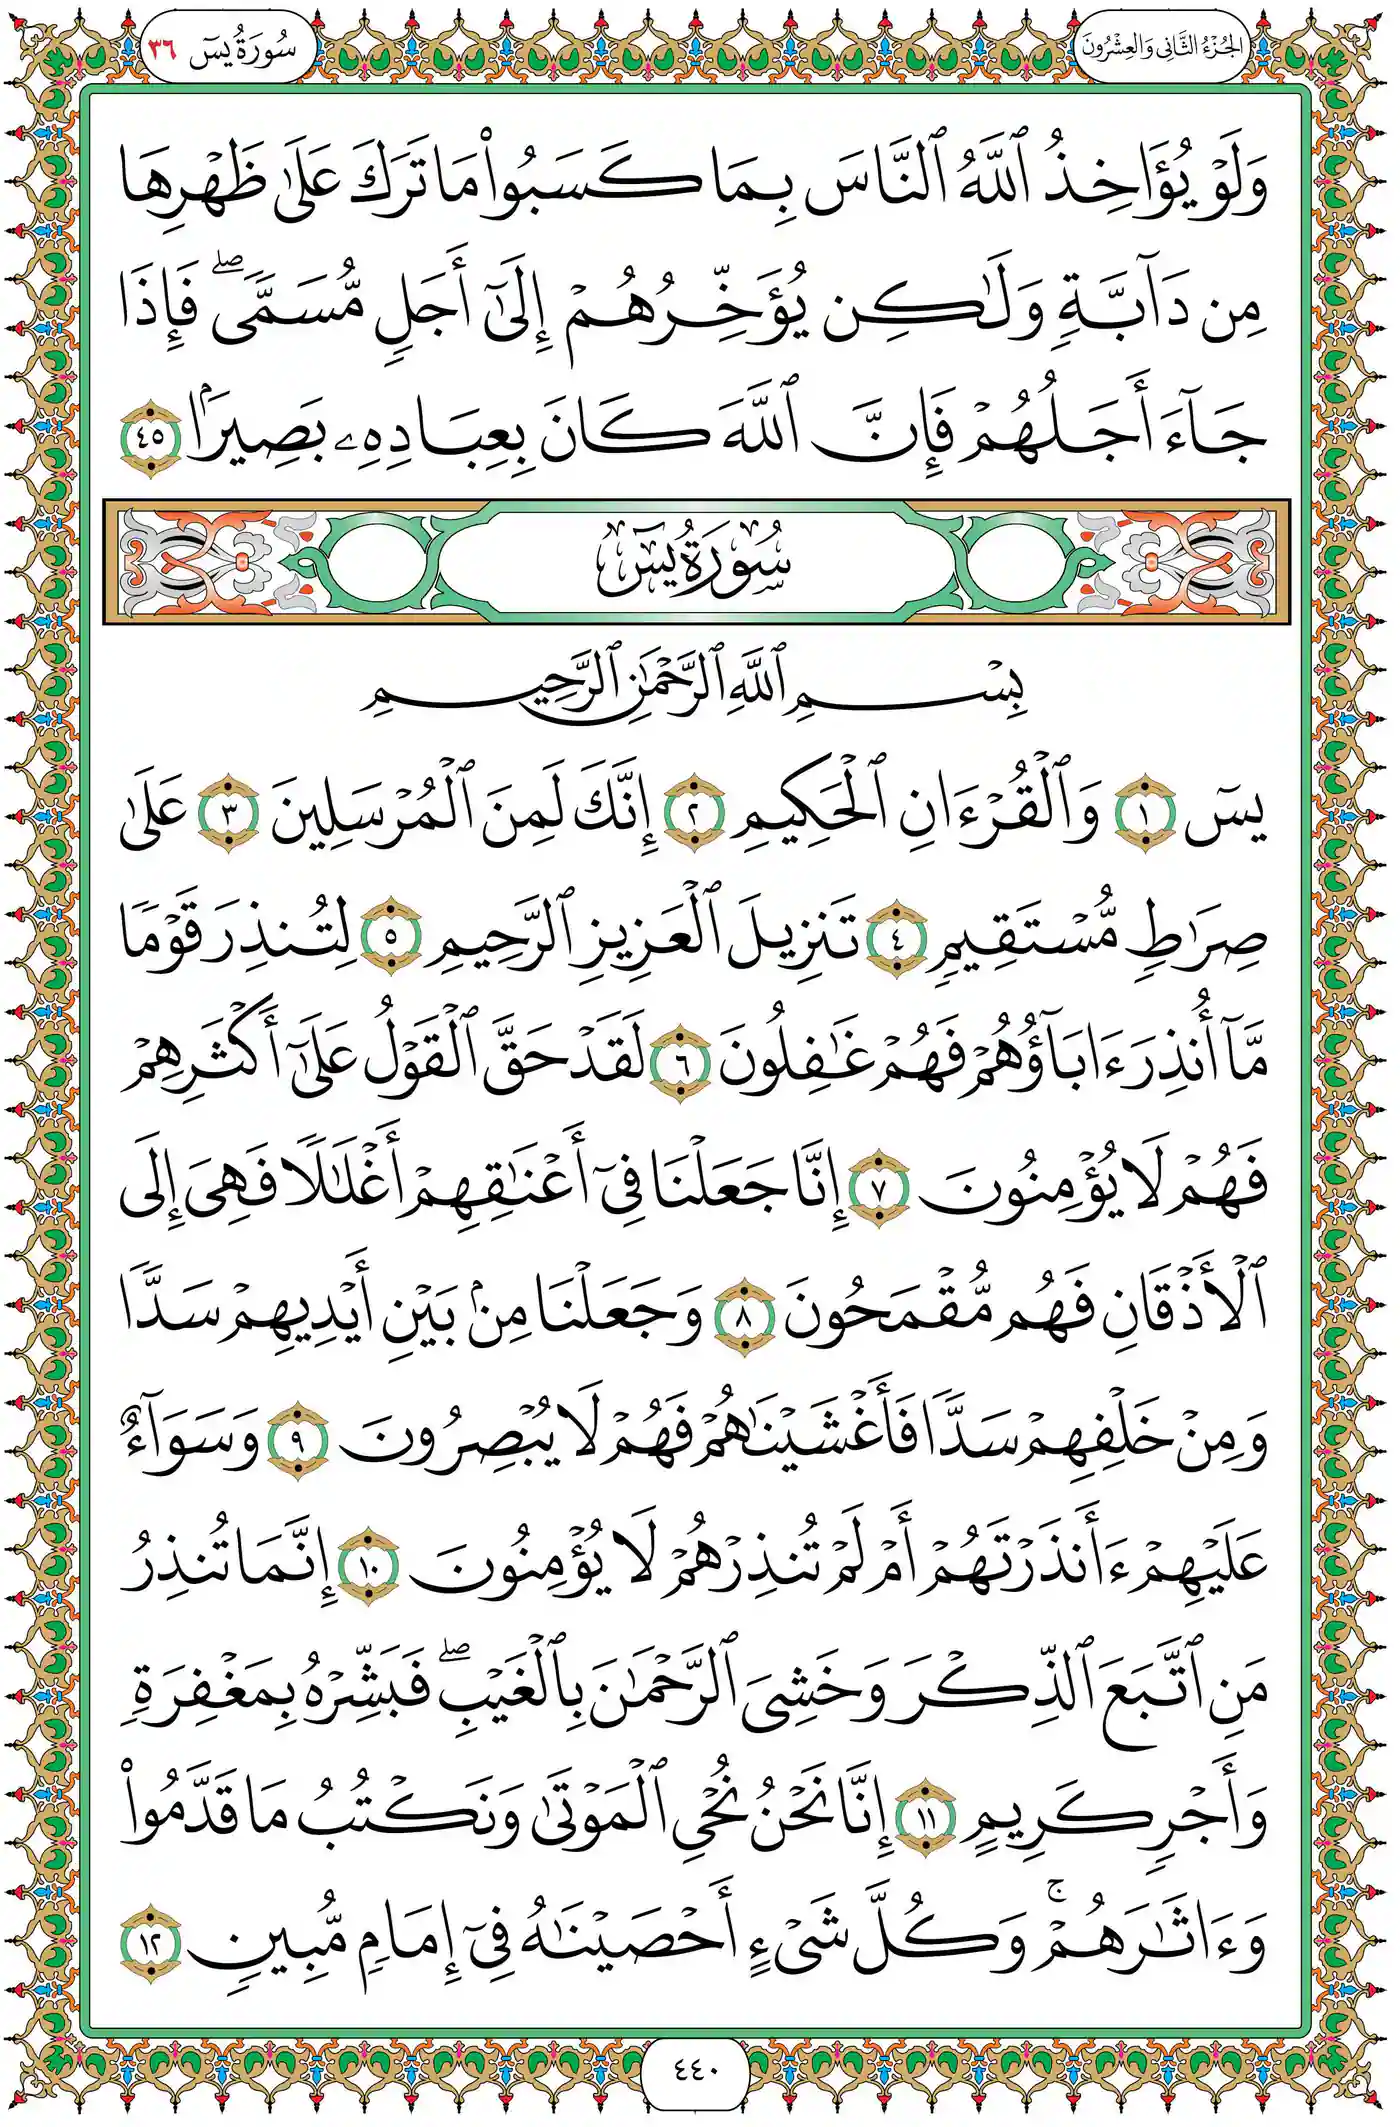 الجُزْءُ الثَّانِي وَالعِشْرُونَ
سُورَةُ يسٓ ٣٦
وَلَوْ يُؤَاخِذُ ٱللَّهُ ٱلنَّاسَ بِمَا كَسَبُوا۟ مَا تَرَكَ عَلَىٰ ظَهْرِهَا
مِن دَآبَّةٍ وَلَـٰكِن يُؤَخِّرُهُمْ إِلَىٰٓ أَجَلٍ مُّسَمًّى ۖ فَإِذَا
جَآءَ أَجَلُهُمْ فَإِنَّ ٱللَّهَ كَانَ بِعِبَادِهِۦ بَصِيرًۢا ٤٥
سُورَةُ يسٓ
بِسْمِ ٱللَّهِ ٱلرَّحْمَـٰنِ ٱلرَّحِيمِ
يسٓ ١ وَٱلْقُرْءَانِ ٱلْحَكِيمِ ٢ إِنَّكَ لَمِنَ ٱلْمُرْسَلِينَ ٣ عَلَىٰ
صِرَٰطٍ مُّسْتَقِيمٍ ٤ تَنزِيلَ ٱلْعَزِيزِ ٱلرَّحِيمِ ٥ لِتُنذِرَ قَوْمًا
مَّآ أُنذِرَ ءَابَآؤُهُمْ فَهُمْ غَـٰفِلُونَ ٦ لَقَدْ حَقَّ ٱلْقَوْلُ عَلَىٰٓ أَكْثَرِهِمْ
فَهُمْ لَا يُؤْمِنُونَ ٧ إِنَّا جَعَلْنَا فِىٓ أَعْنَـٰقِهِمْ أَغْلَـٰلًا فَهِىَ إِلَى
ٱلْأَذْقَانِ فَهُم مُّقْمَحُونَ ٨ وَجَعَلْنَا مِنۢ بَيْنِ أَيْدِيهِمْ سَدًّا
وَمِنْ خَلْفِهِمْ سَدًّا فَأَغْشَيْنَـٰهُمْ فَهُمْ لَا يُبْصِرُونَ ٩ وَسَوَآءٌ
عَلَيْهِمْ ءَأَنذَرْتَهُمْ أَمْ لَمْ تُنذِرْهُمْ لَا يُؤْمِنُونَ ١٠ إِنَّمَا تُنذِرُ
مَنِ ٱتَّبَعَ ٱلذِّكْرَ وَخَشِىَ ٱلرَّحْمَـٰنَ بِٱلْغَيْبِ ۖ فَبَشِّرْهُ بِمَغْفِرَةٍ
وَأَجْرٍ كَرِيمٍ ١١ إِنَّا نَحْنُ نُحْىِ ٱلْمَوْتَىٰ وَنَكْتُبُ مَا قَدَّمُوا۟
وَءَاثَـٰرَهُمْ ۚ وَكُلَّ شَىْءٍ أَحْصَيْنَـٰهُ فِىٓ إِمَامٍ مُّبِينٍ ١٢
٤٤٠